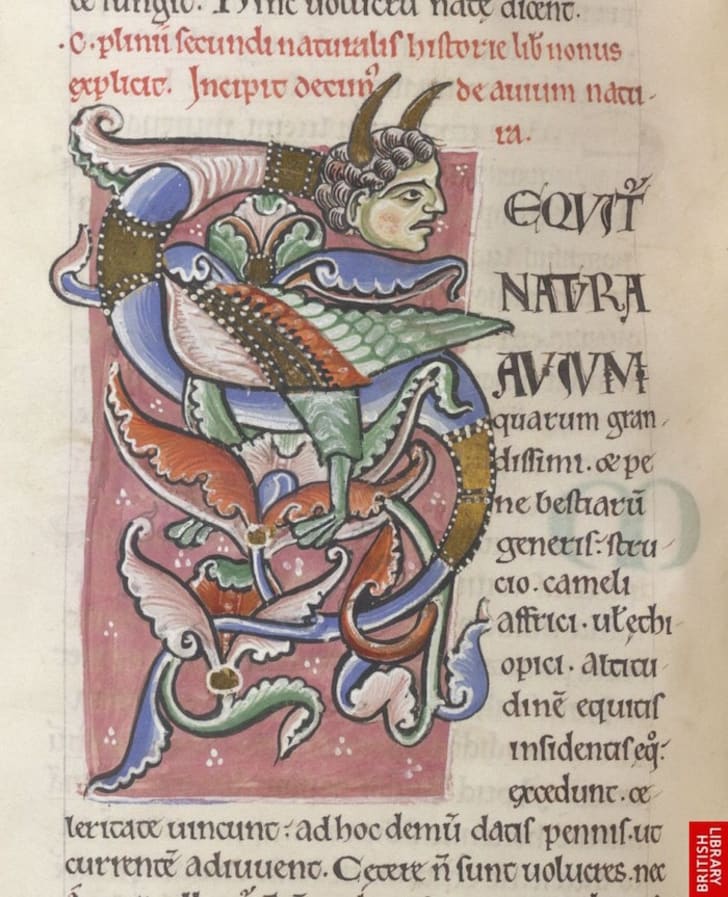 iungit. Hinc uolucru nate dicent.
.C. plinii secundi naturalis historie lib nonus
explicit. Incipit decim⁹ de auium natu-
ra.
EQVIT̃
NATVRA
AVIVM
quarum gran-
dissimi. & pe
ne bestiarū
generis: stru
cio. cameli
affrici. ul̃ ęthi
opici. altitu
dinē equitis
insidentis eq̃:
excedunt. ce-
leritate uincunt: ad hoc demū datis pennis. ut
currentē adiuuent. Cetere ñ sunt uolucres. nec
BRITISH
LIBRARY